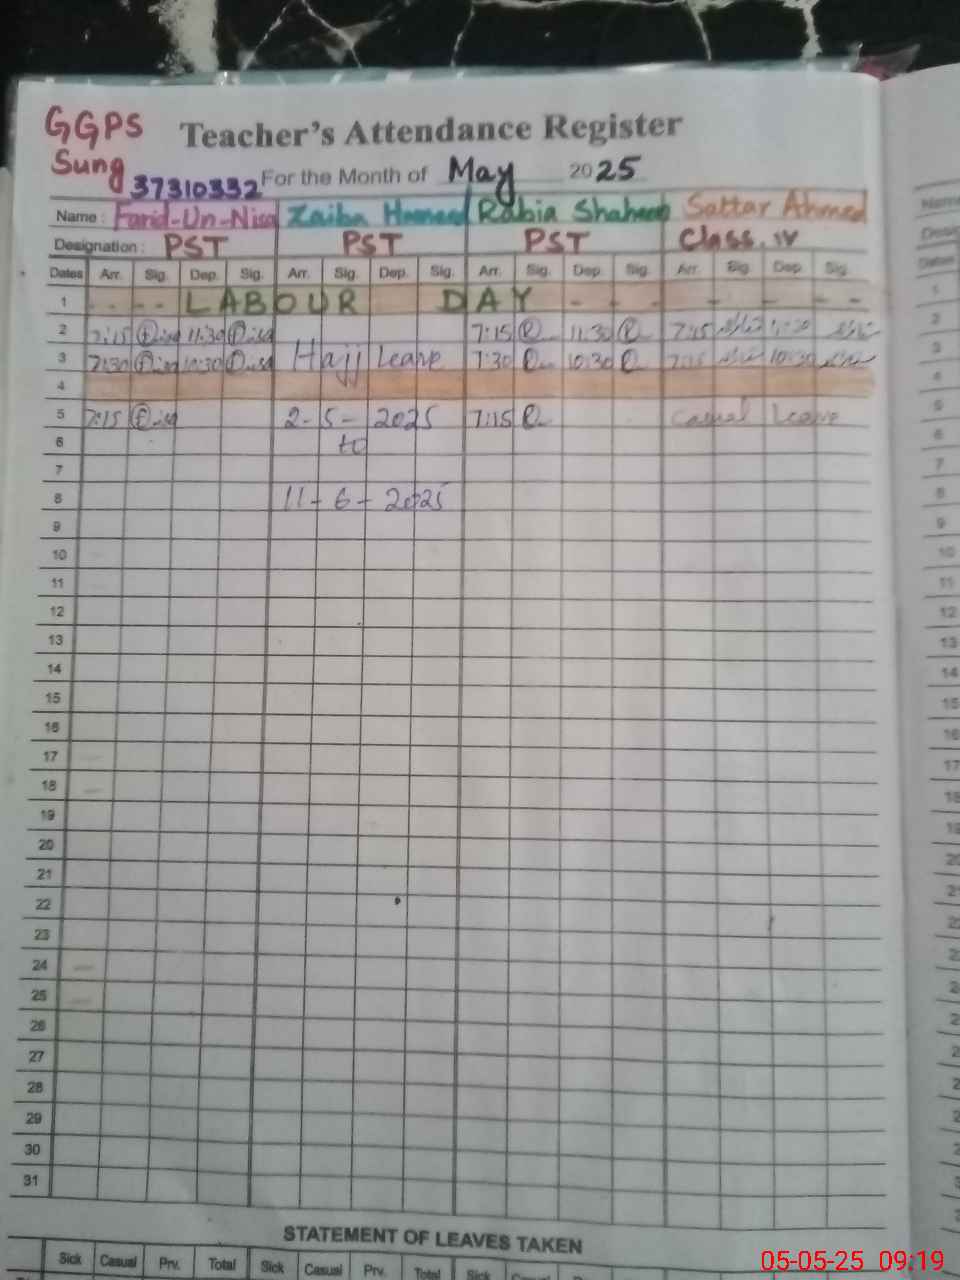 GGPS
Teacher's Attendance Register
Sung
37310332 For the Month of May 2025
Name : Farid-Un-Nisa Zaiba Hameed Rabia Shaheen Sattar Ahmed
Designation : PST PST PST Class. IV
Dates Arr. Sig. Dep. Sig. Arr. Sig. Dep. Sig. Arr. Sig. Dep. Sig. Arr. Sig. Dep. Sig.
1 - - - LABOUR DAY - - - - - -
2 7:15 11:30 7:15 11:30 7:15 11:30
3 7:30 10:30 Hajj Leave 7:30 10:30 7:15 10:30
4
5 7:15 2-5-2025 7:15 Casual Leave
6 to
7
8 11-6-2025
9
10
11
12
13
14
15
16
17
18
19
20
21
22
23
24
25
26
27
28
29
30
31
STATEMENT OF LEAVES TAKEN
Sick Casual Prv. Total Sick Casual Prv. Total Sick
05-05-25 09:19